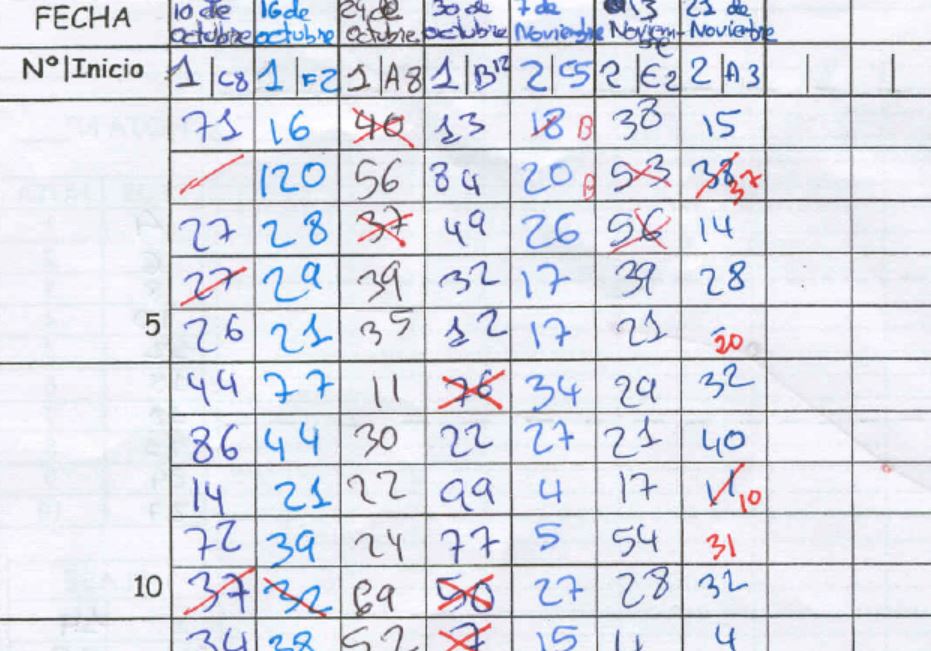 FECHA 10 de octubre 16 de octubre 24 de octubre 30 de octubre 7 de Noviembre 13 21 de
Nº|Inicio 1|C8 1|F2 1|A8 1|B12 2|C5 2|E2 2|A3
71 16 40 13 18 B 38 15
120 56 84 20 B 53 38 37
27 28 37 49 26 56 14
27 29 39 32 17 39 28
5 26 21 35 12 17 21 20
44 77 11 76 34 29 32
86 44 30 22 27 21 40
14 21 22 99 4 17 11 10
72 39 24 77 5 54 31
10 37 32 69 50 27 28 32
34 38 52 7 15 4